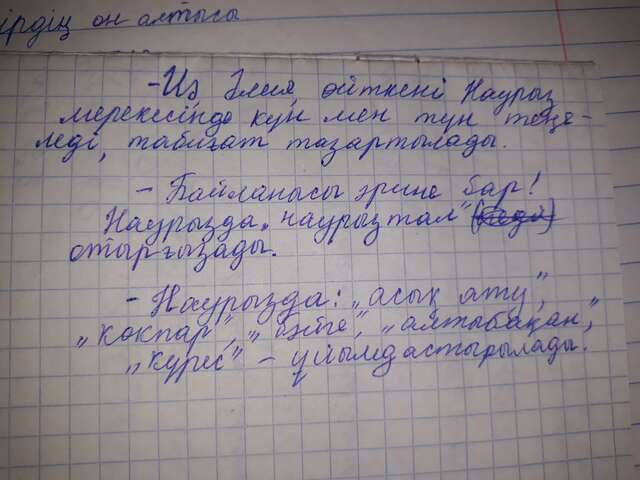 ірдің он алтысы
-Из Әлия, өйткені Наурыз
мерекесінде күн мен түн теңе-
леді, табиғат тазартылады.
- Байланысы әрине бар!
Наурызда „наурызтал"
отырғызады.
- Наурызда: „асық ату",
„көкпар", „бәйге", „алтыбақан",
„күрес" - ұйымдастырылады.